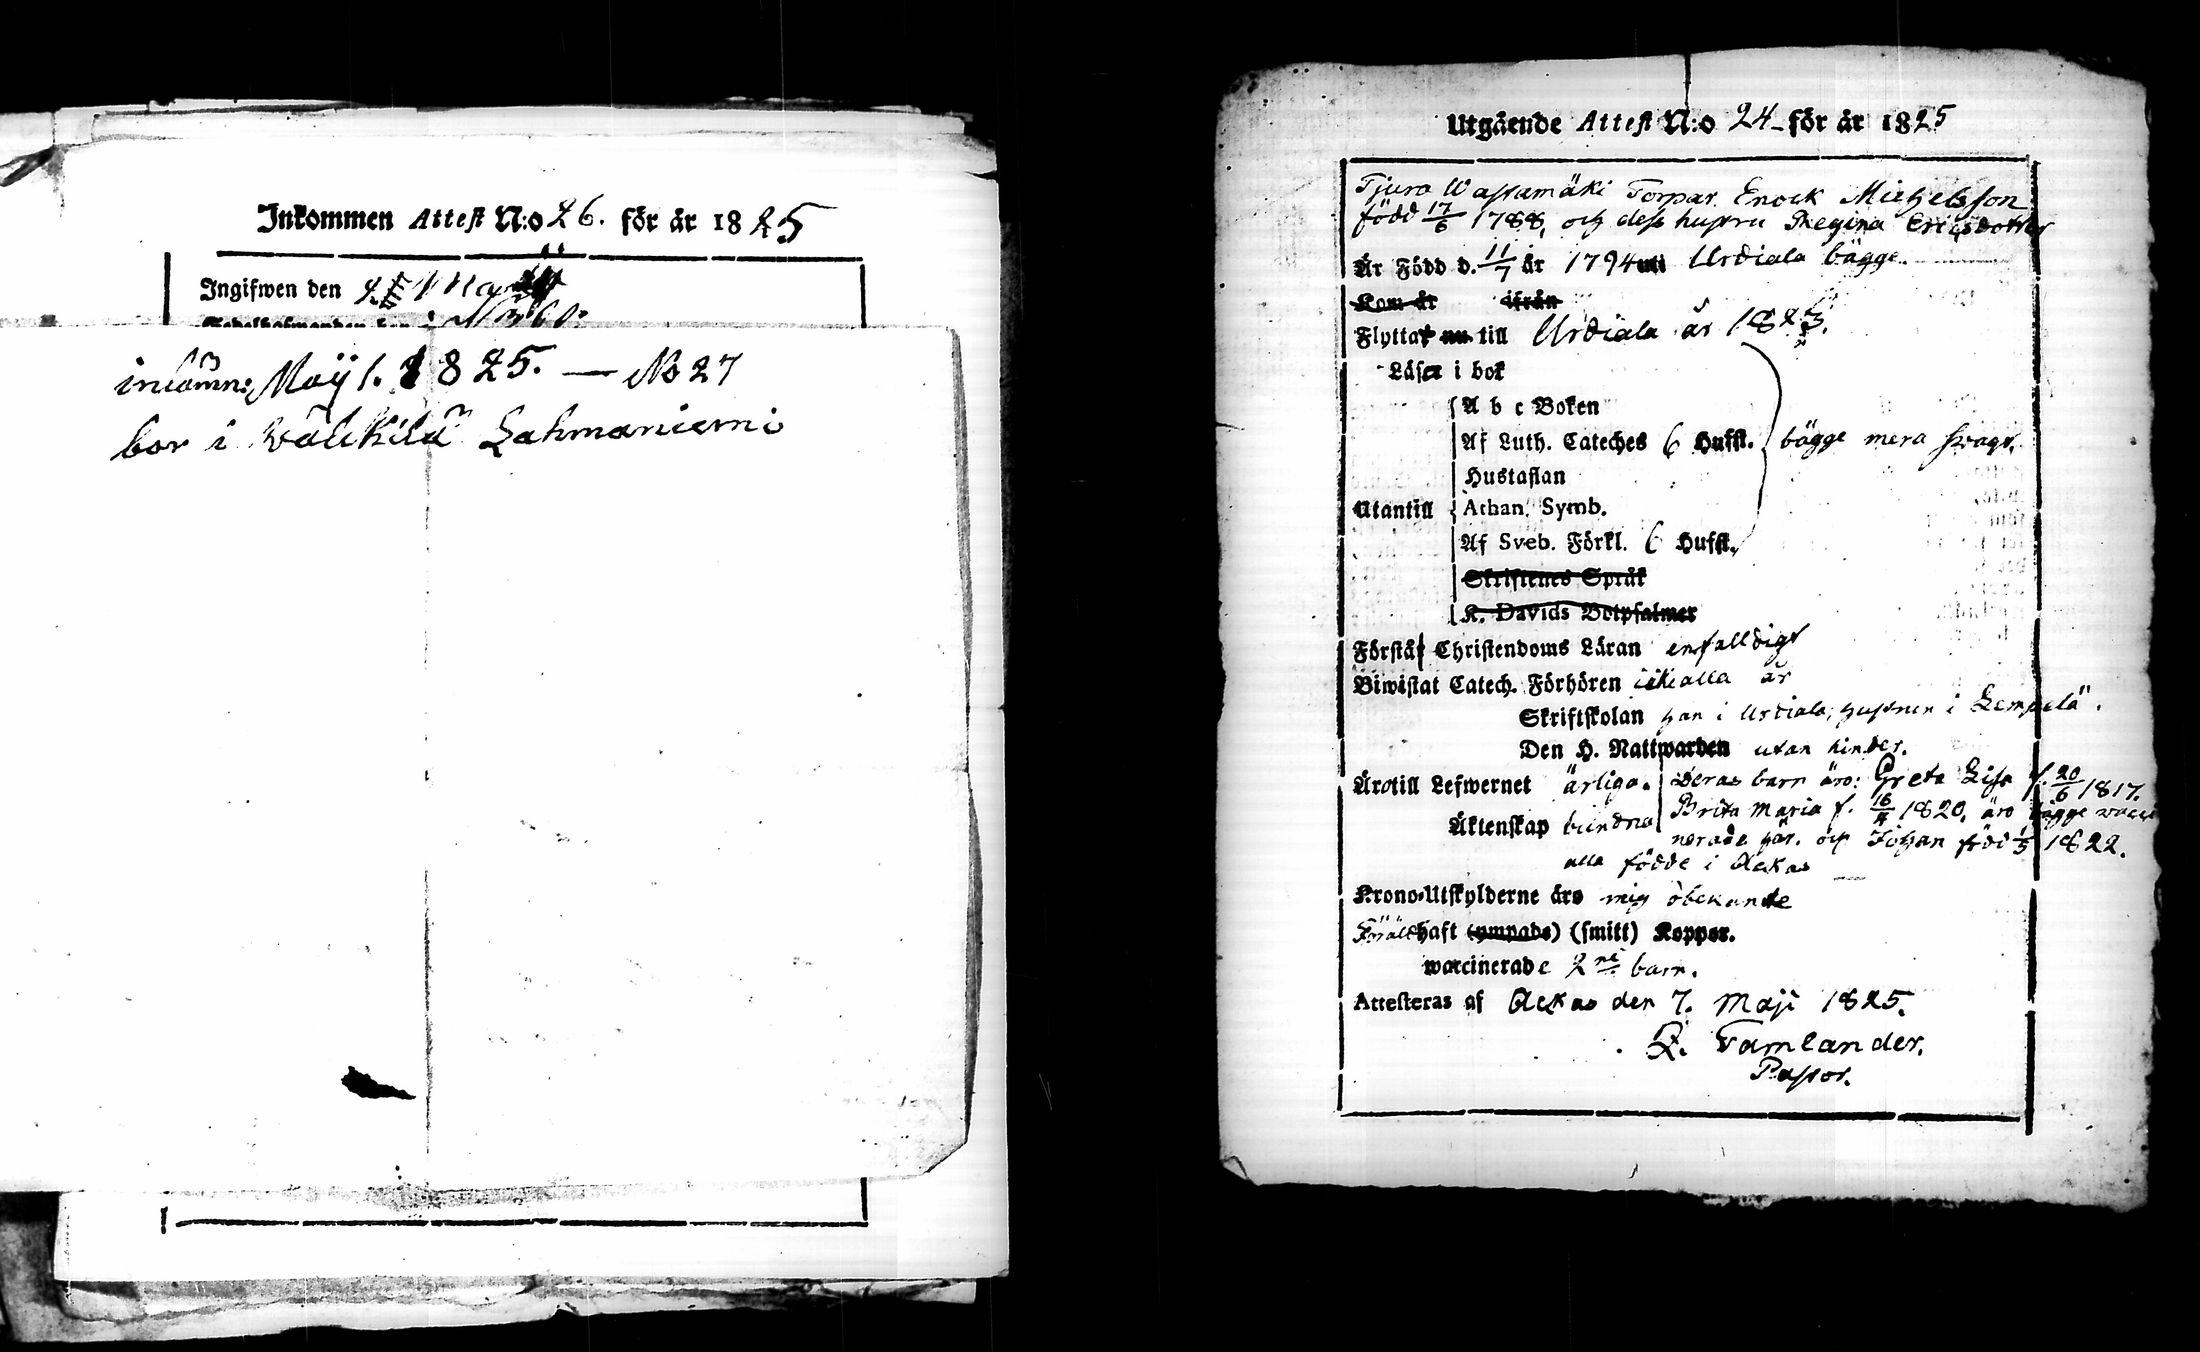 Inkommen Attest N:o 26. för år 1825
Ingifwen den
inlämn: Maÿ 1. 1825. — No 27
bor i Wälkilä Lahmaniemi
Utgående Attest N:o 24 för år 1825
Tjuro Wassamäki Torpar. Enock Michelsson
född 17/6 1788, och dess hustru Regina Ericsdotter
Är Född d. 11/7 år 1794 uti Urdiala bägge.
Kom år ifrån
Flyttat nu till Urdiala år 1823.
Läser i bok
A b c Boken
Af Luth. Cateches 6 Hufst. bägge mera svagt.
Hustaflan
Utantill Athan. Symb.
Af Sveb. Förkl. 6 Hufst.
Skriftenes Språk
K. Davids Botpsalmer
Förstå Christendoms Läran enfalldigt
Biwistat Catech. Förhören icke alla år
Skriftskolan han i Urdiala, hustrun i Lempelä.
Den H. Nattwarden utan hinder.
Äro till Lefwernet ärliga. Deras barn äro: Greta Lisa f. 20/6 1817.
Äktenskap bundna Brita Maria f. 1820, äro bägge vacci
nerade här. och Johan född 1822.
alla födde i Ackas
Krono-Utskylderne äro mig obekante
haft (ympade) (smitt) Koppor.
waccinerade 2ne barn.
Attesteras af Ackas den 7. Maji 1825.
Tamlander.
Pastor.